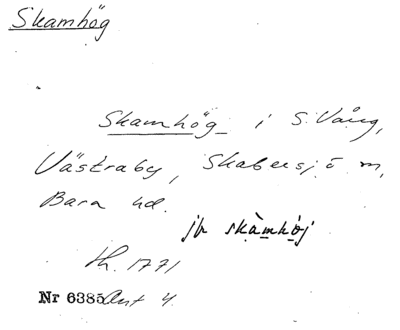 Skamhög
Skamhög i S. Vång,
Västraby, Skabersjö sn,
Bara hd.
jfr skàmhöj
Lh. 1771
Nr 6385 Ant 4.